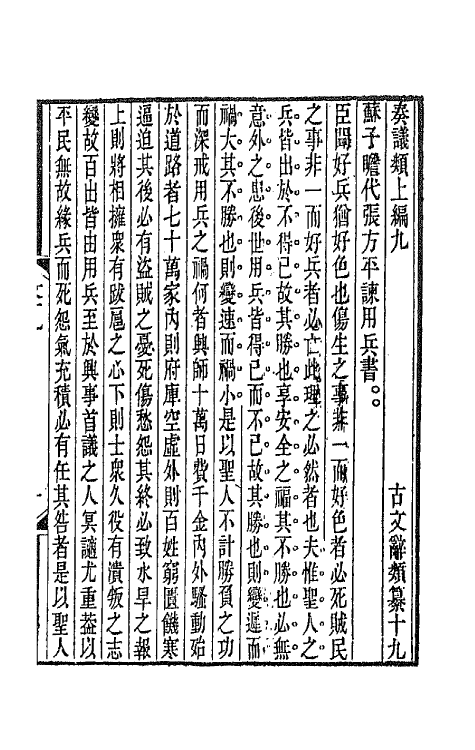 奏議類上編九　古文辭類纂十九
蘇子瞻代張方平諫用兵書。。
臣聞好兵猶好色也傷生之事非一而好色者必死賊民
之事非一而好兵者必亡此理之必然者也夫惟聖人之
兵皆出於不得已故其勝也享安全之福其不勝也必無
意外之患後世用兵皆得已而不已故其勝也則變遲而
禍大其不勝也則變速而禍小是以聖人不計勝負之功
而深戒用兵之禍何者興師十萬日費千金內外騷動殆
於道路者七十萬家內則府庫空虛外則百姓窮匱饑寒
逼迫其後必有盜賊之憂死傷愁怨其終必致水旱之報
上則將相擁眾有跋扈之心下則士眾久役有潰叛之志
變故百出皆由用兵至於興事首議之人冥讁尤重葢以
平民無故緣兵而死怨氣充積必有任其咎者是以聖人